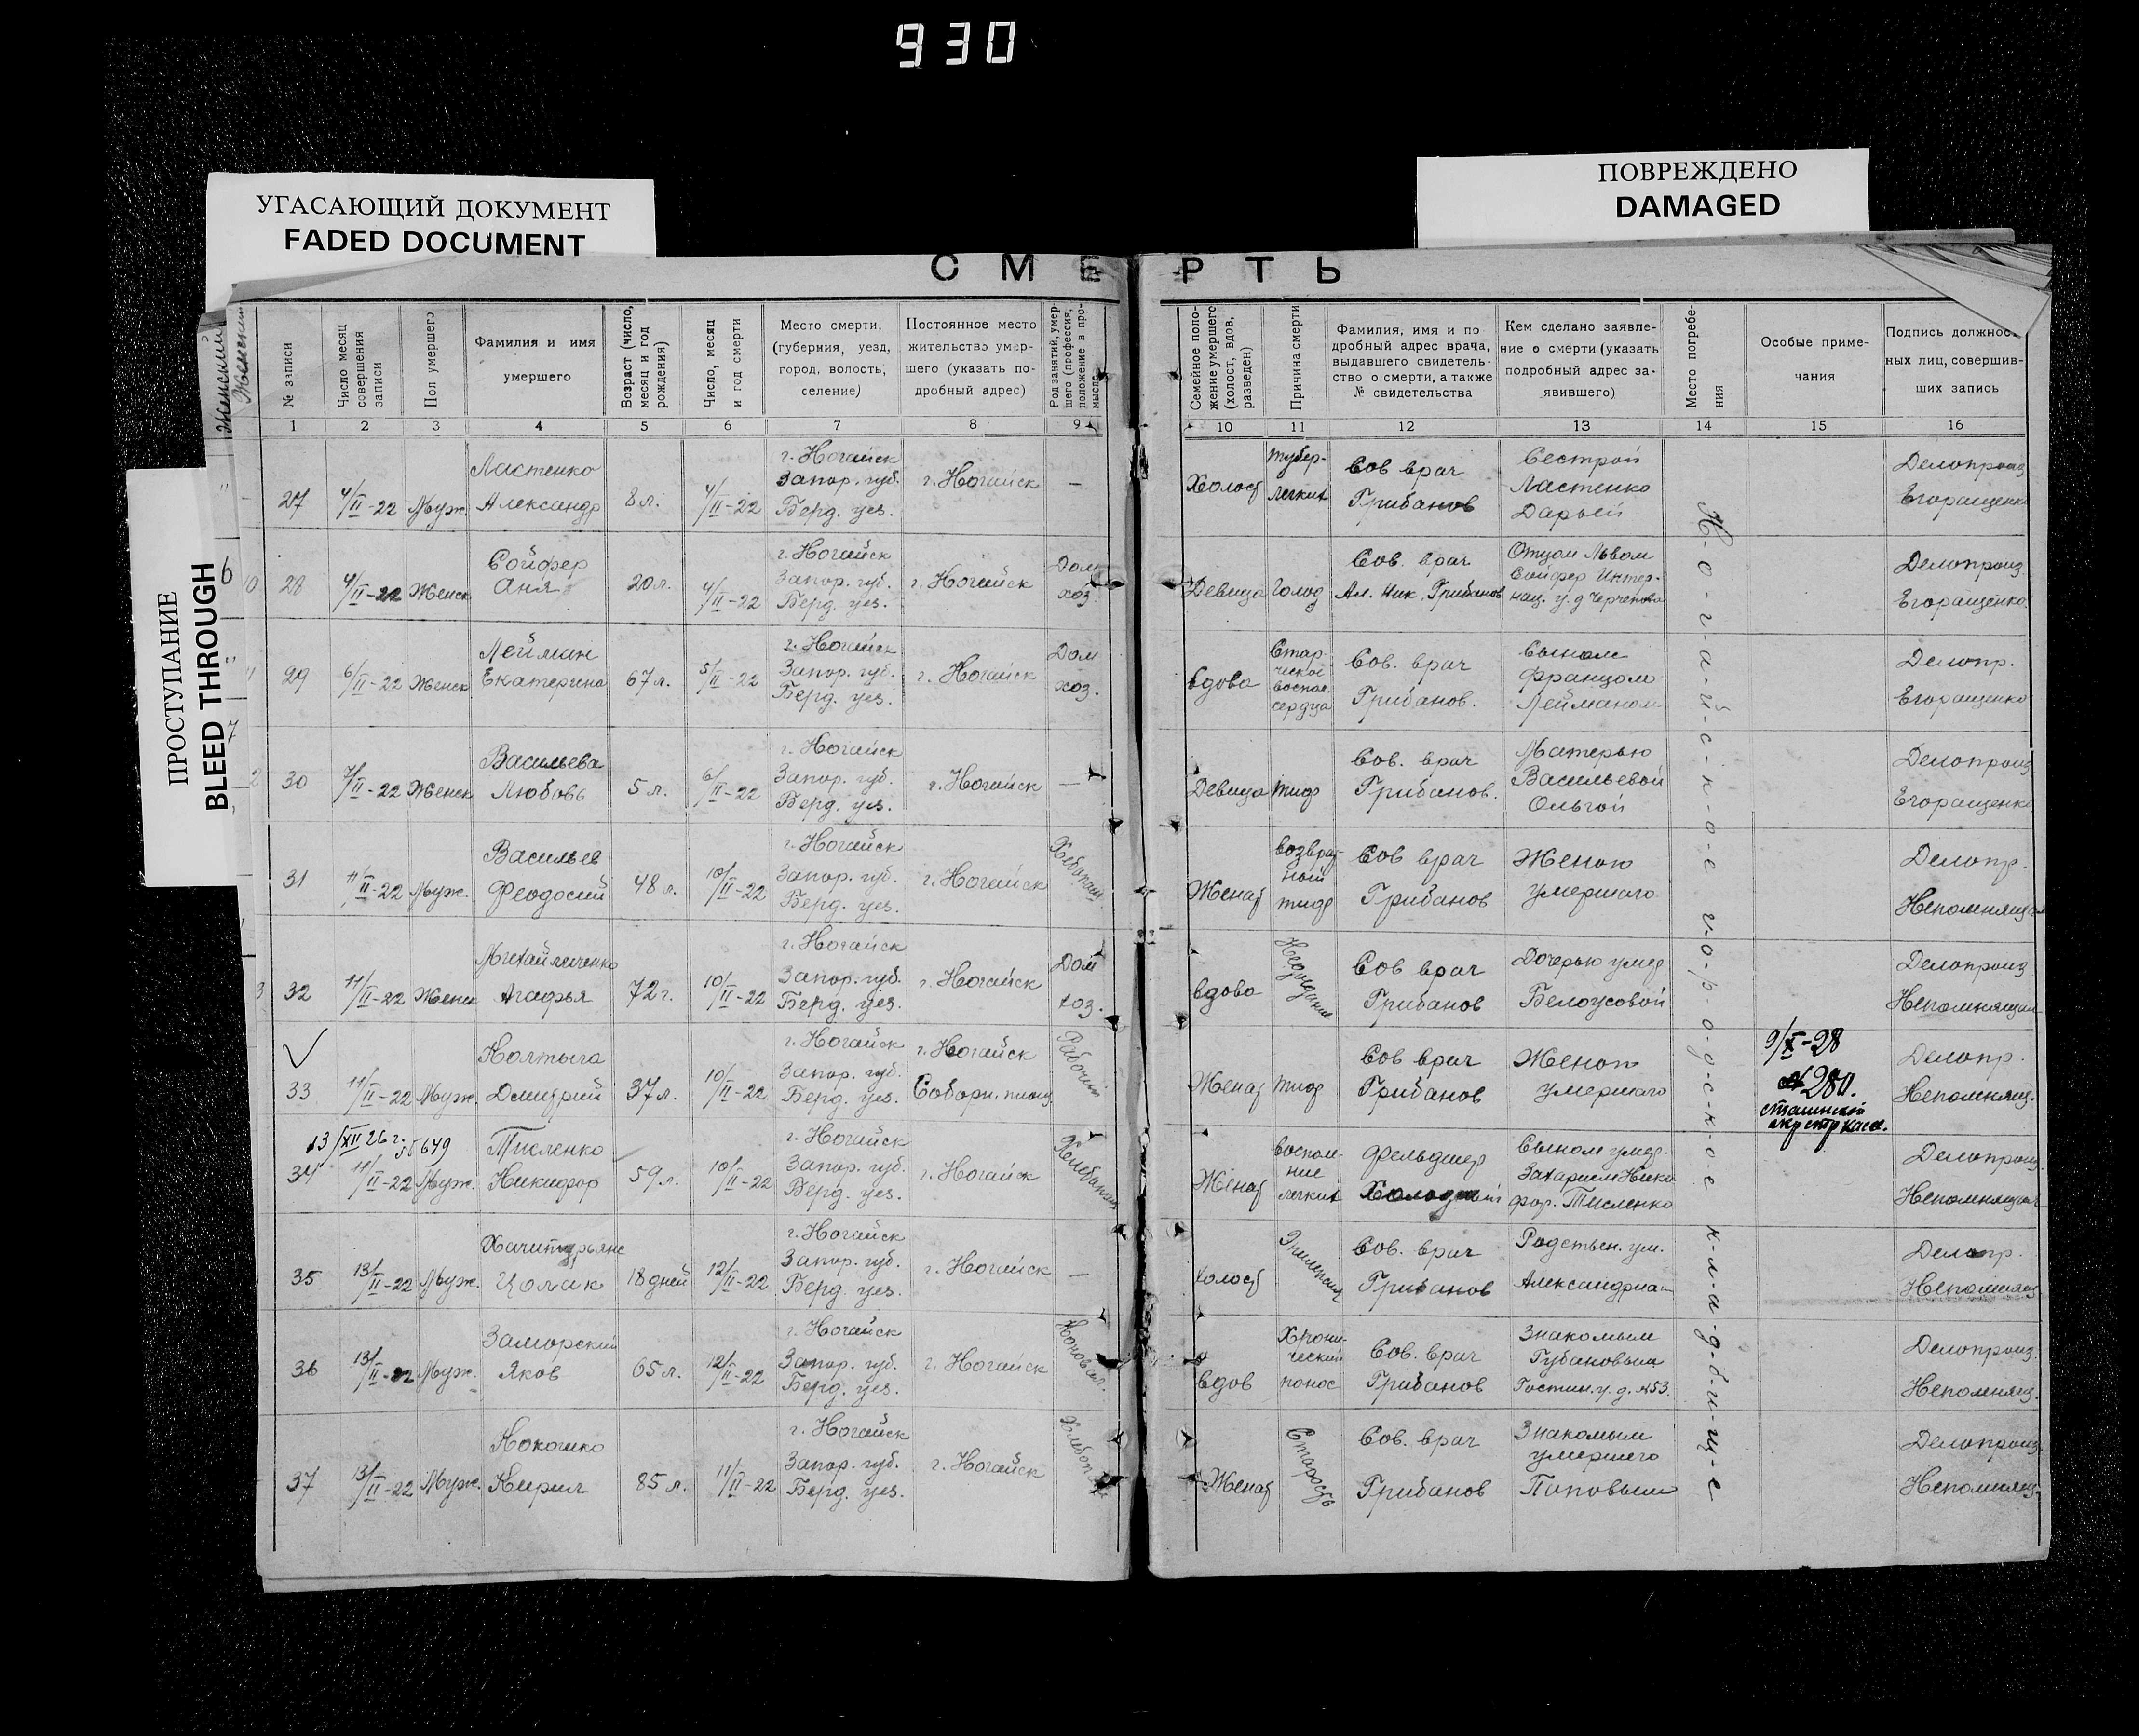 930
УГАСАЮЩИЙ ДОКУМЕНТ
FADED DOCUMENT
ПОВРЕЖДЕНО
DAMAGED
ПРОСТУПАНИЕ
BLEED THROUGH
СМЕРТЬ
№ записи
Число месяц совершения записи
Пол умершего
Фамилия и имя умершего
Возраст (число, месяц и год рождения)
Число, месяц и год смерти
Место смерти, (губерния, уезд, город, волость, селение)
Постоянное место жительство умершего (указать подробный адрес)
Род занятий, умершего (профессия, положение в промысле
Семейное положение умершего (холост, вдов, разведен)
Причина смерти
Фамилия, имя и подробный адрес врача, выдавшего свидетельство о смерти, а также № свидетельства
Кем сделано заявление о смерти (указать подробный адрес заявившего)
Место погребения
Особые примечания
Подпись должностных лиц, совершивших запись
1 2 3 4 5 6 7 8 9 10 11 12 13 14 15 16
27 4/II-22 Муж. Ластенко Александр 8 л. 4/II-22 г. Ногайск Запор. губ. Берд. уез. г. Ногайск — Холост тубер. легких Сов врач Грибанов Сестрой Ластенко Дарьей Делопроиз Егоращенко
28 4/II-22 Женск Сойфер Аня 20 л. 4/II-22 г. Ногайск Запор. губ. Берд. уез. г. Ногайск Дом хоз. Девица Голод Сов. врач Ал. Ник. Грибанов Отцом Львом Сойфер Интернац. у. д Делопроиз. Егоращенко.
29 6/II-22 Женск Лейман Екатерина 67 л. 5/II-22 г. Ногайск Запор. губ. Берд. уез. г. Ногайск Дом хоз. Вдова Старческое воспал. сердца Сов. врач Грибанов. Сыном Францом Лейманом Делопр. Егоращенко
30 7/II-22 Женск Васильева Любовь 5 л. 6/II-22 г. Ногайск Запор. губ. Берд. уез. г. Ногайск — Девица Тиф Сов. врач Грибанов. Матерью Васильевой Ольгой Делопроиз Егоращенко
31 11/II-22 Муж. Васильев Феодосий 48 л. 10/II-22 г. Ногайск Запор. губ. Берд. уез. г. Ногайск Хлебопаш Женат возвратный тиф Сов врач Грибанов Женою умершаго Делопр. Непомнящая
32 11/II-22 Женск Михайличенко Агафья 72 г. 10/II-22 г. Ногайск Запор. губ. Берд. уез. г. Ногайск Дом хоз. Вдова Сов врач Грибанов Дочерью умер Белоусовой Делопроиз Непомнящая
33 11/II-22 Муж. Колтыга Дмитрий 37 л. 10/II-22 г. Ногайск Запор. губ. Берд. уез. г. Ногайск Соборн. площ Рабочий Женат Тиф Сов врач Грибанов Женой умершаго 9/X-28 № 280. окр стр касс. Делопр. Непомнящ.
13/XII 26 г. 649
34 11/II-22 Муж. Тисленко Никифор 59 л. 10/II-22 г. Ногайск Запор. губ. Берд. уез. г. Ногайск Хлебопаш Женат Воспаление легких Фельдшер Холодный Сыном умер. Захарием Никифор. Тисленко Делопроиз. Непомнящая
35 13/II-22 Муж. Хачитурьянс Цолак 18 дней 12/II-22 г. Ногайск Запор. губ. Берд. уез. г. Ногайск — Холост Эпилепсия Сов. врач Грибанов Родствен. ум. Делопр. Непомнящ
36 13/II-22 Муж. Заморский Яков 65 л. 12/II-22 г. Ногайск Запор. губ. Берд. уез. г. Ногайск Коновал. Вдов Хронический понос Сов. врач Грибанов Знакомым Губановым Гостин. у. д. №53. Делопроиз. Непомнящ.
37 13/II-22 Муж. Кокошко Кирил 85 л. 11/II-22 г. Ногайск Запор. губ. Берд. уез. г. Ногайск Хлебопаш Женат Старость Сов. врач Грибанов Знакомым умершего Поповым Делопроиз. Непомнящ.
Н-о-г-а-й-с-к-о-е г-о-р-о-д-с-к-о-е к-л-а-д-б-и-щ-е